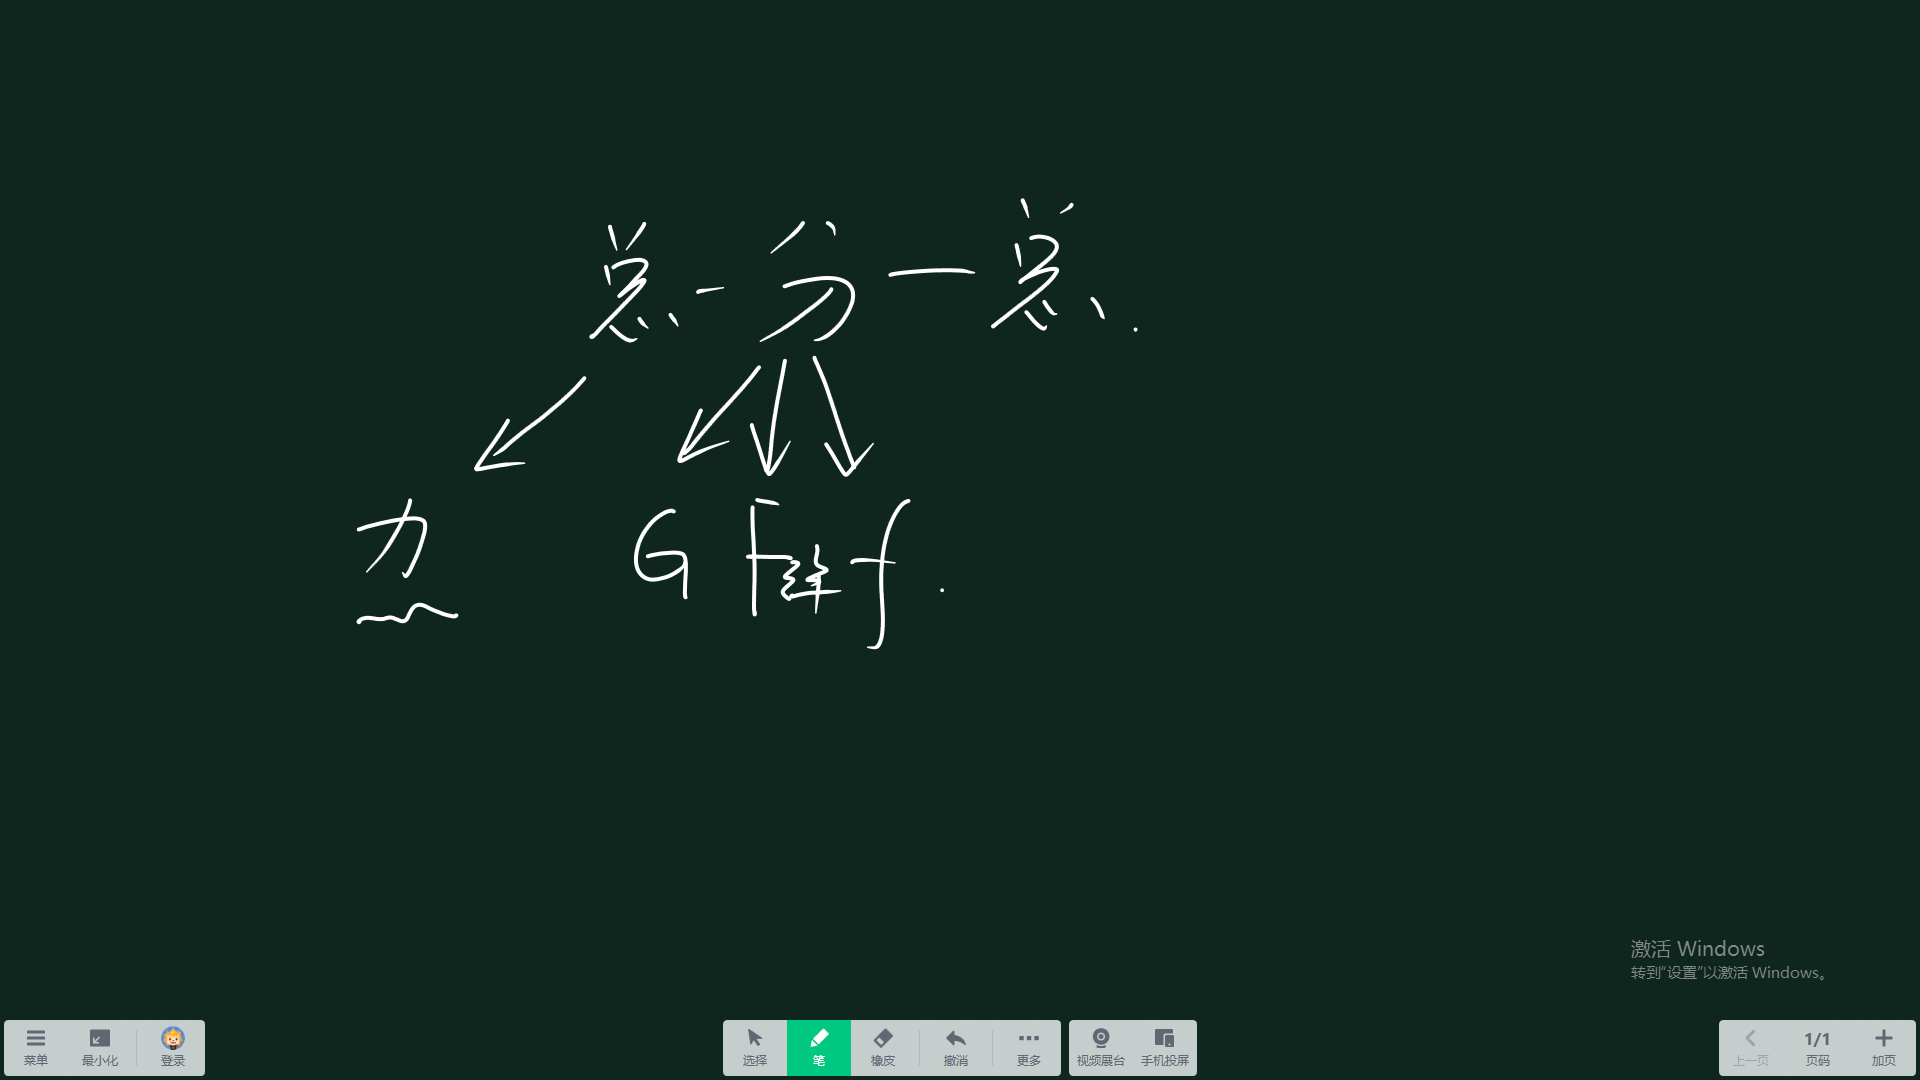 总-分-总.
力 G F弹 f.
激活 Windows
转到"设置"以激活 Windows。
菜单 最小化 登录 选择 笔 橡皮 撤消 更多 视频展台 手机投屏 上一页 1/1 页码 加页